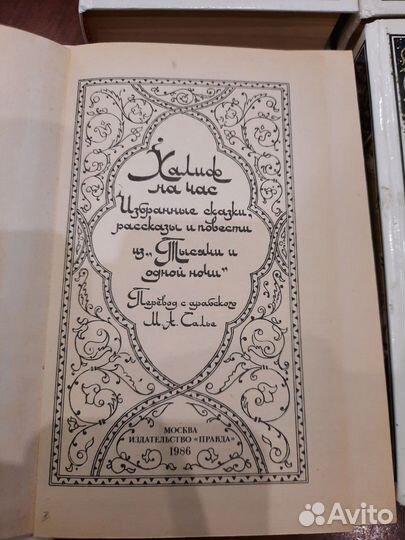 Халиф
на час
Избранные сказки,
рассказы и повести
из „Тысячи и
одной ночи“
Перевод с арабского
М. А. Салье
МОСКВА
ИЗДАТЕЛЬСТВО «ПРАВДА»
1986
Avito